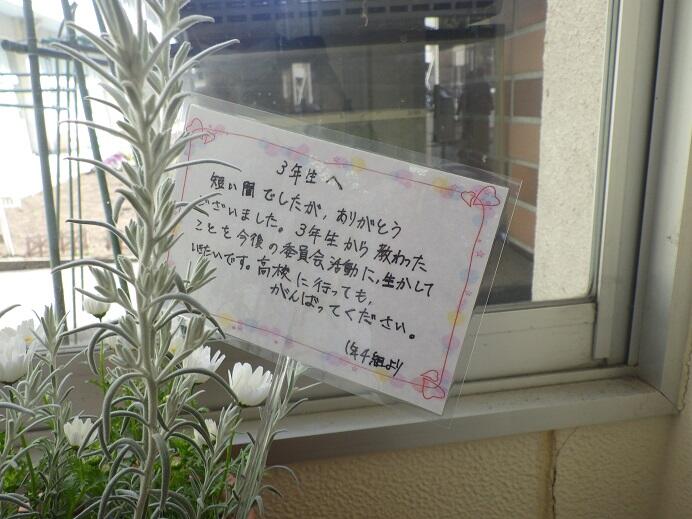 3年生へ
短い間でしたが、ありがとう
ございました。3年生から教わった
ことを今後の委員会活動に、生かして
いきたいです。高校に行っても、
がんばってください。
1年4組より